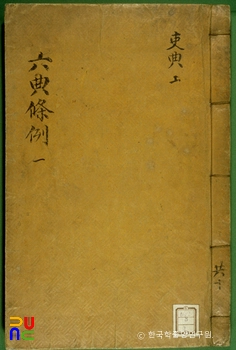 六典條例 一
吏典 上
共十
© 한국학중앙연구원